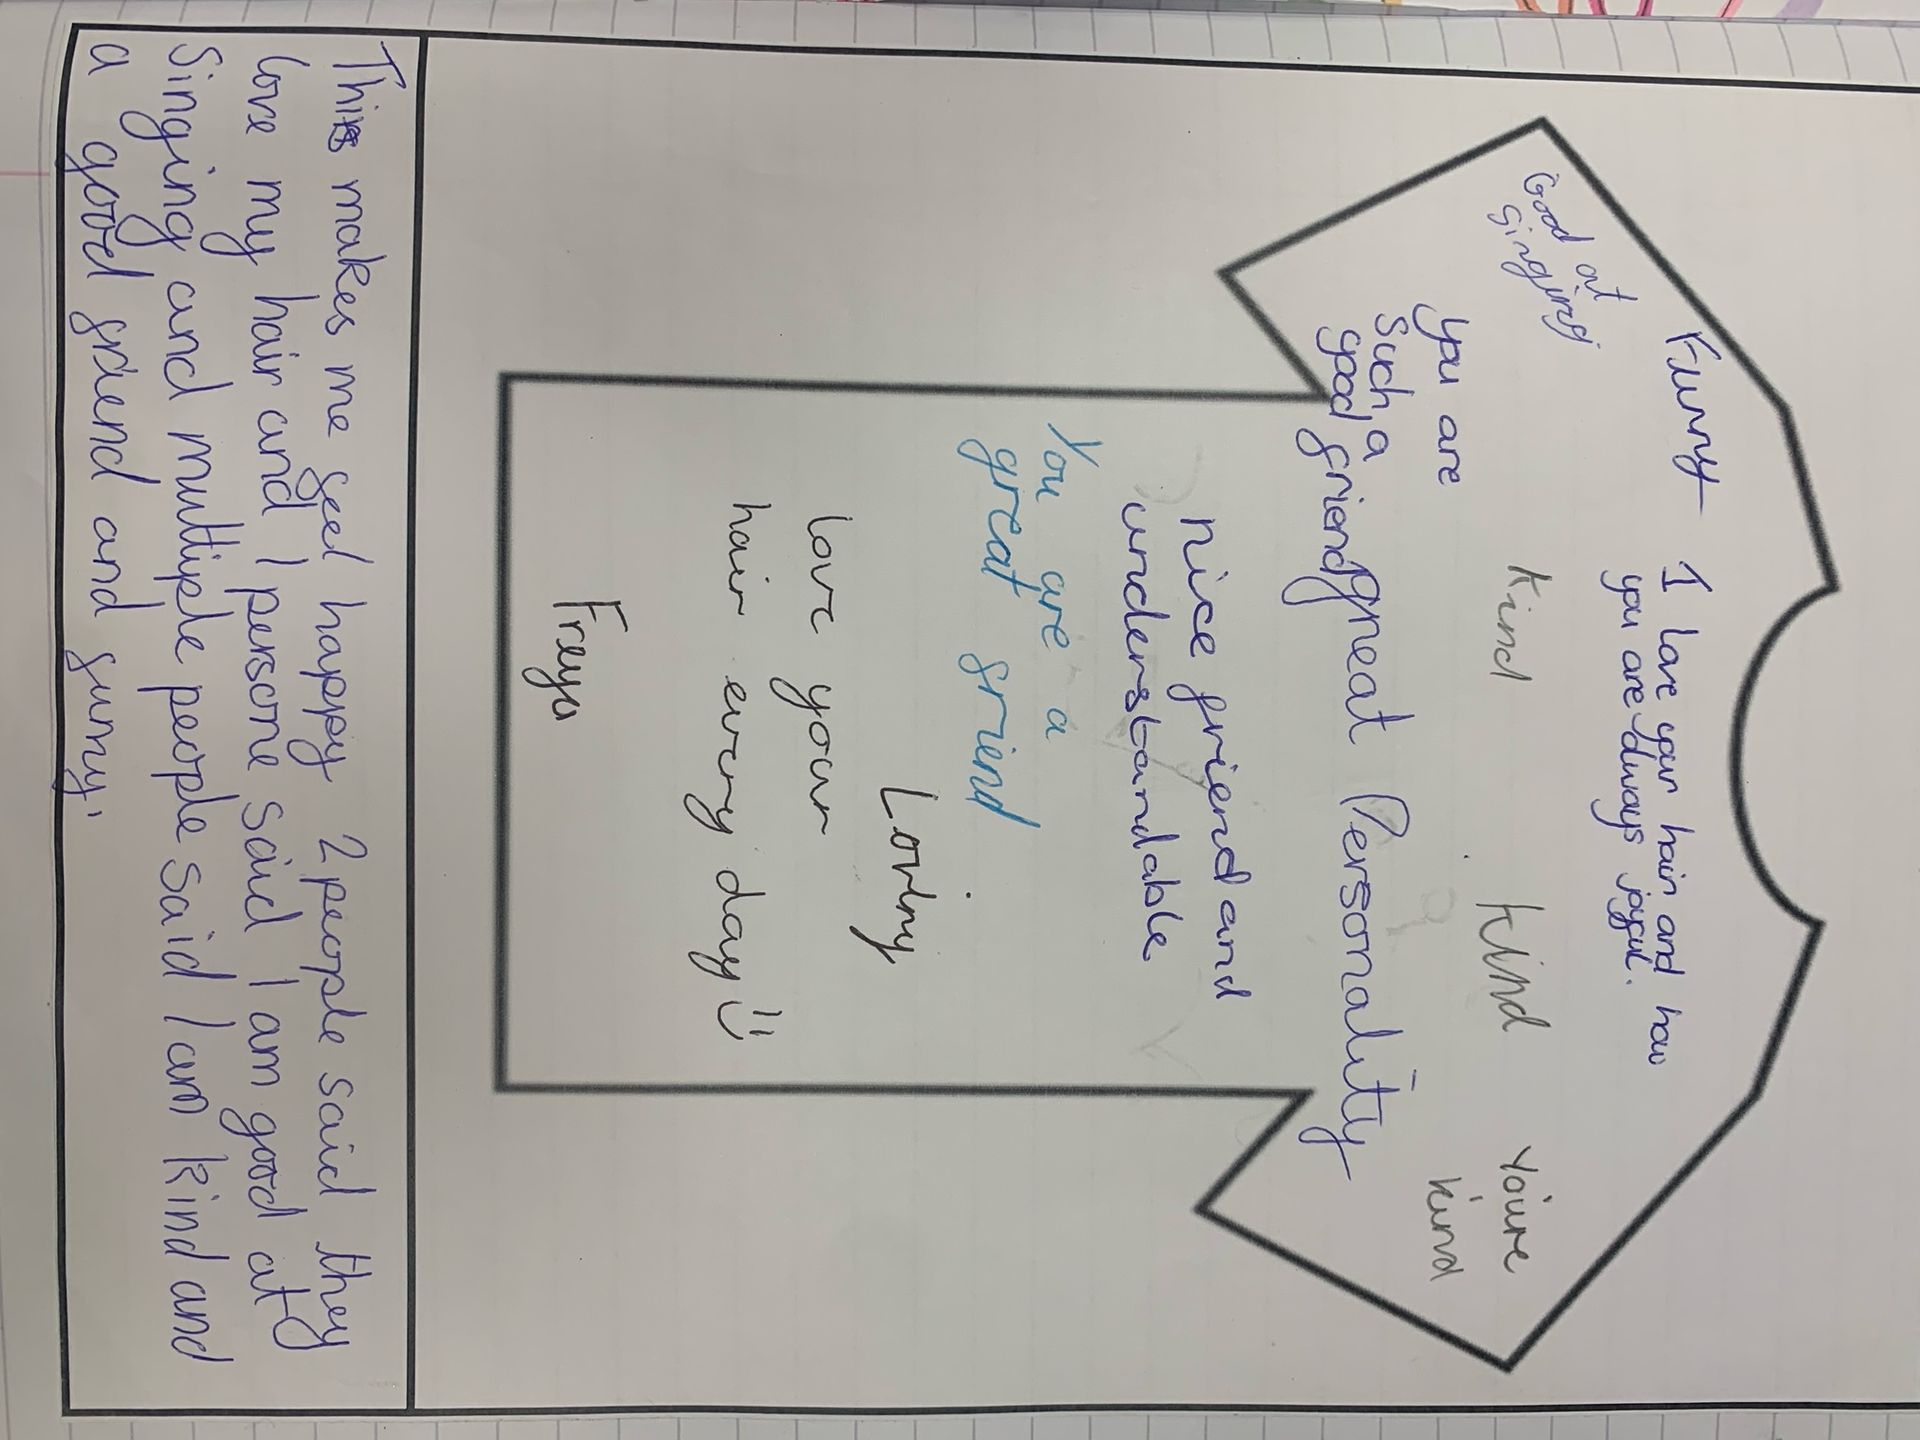 Funny
I love your hair and how
you are always joyful.
Good at
singing
Kind
Kind
You're
kind
you are
such a
good friend
great Personality
nice friend and
understandable
You are a
great friend
Loving
love your
hair every day!
Freya
This makes me feel happy 2 people said they
love my hair and 1 persone said I am good at
Singing and multiple people said I am kind and
a good friend and funny.